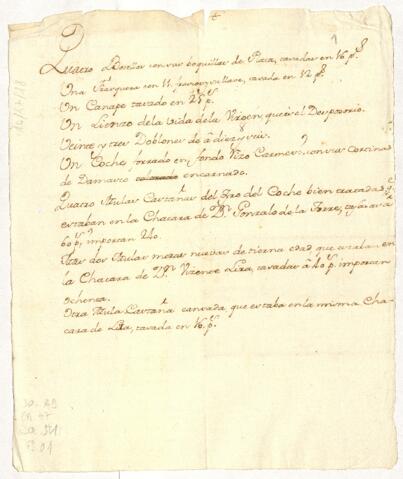 Quatro Botellas con sus boquillas de Plata, tasadas en 16 p.s
Una Frasquera con 11 frascos y su llave, tasada en 12 p.s
Un Canape tasado en 25 p.s
Un Lienzo de la Vida de la Virgen, que es el Desposorio.
Veinte y tres Doblones de á diez y seis.
Un Coche forrado en fondo Viso Carmesi, con sus Cortinas
de Damasco colorado encarnado.
Quatro Mulas Castañas del Tiro del Coche bien tratadas q.e
estaban en la Chacara de D.n Gonzalo de la Torre, tasadas a
60 p.s importan 240.
Otras dos Mulas mesas nuevas de tierna edad que estaban en
la Chacara de D.n Vicente Lira, tasadas á 40 p.s importan
ochenta.
Otra Mula Castaña cansada, que estaba en la misma Cha-
cara de Lira, tasada en 16 p.s